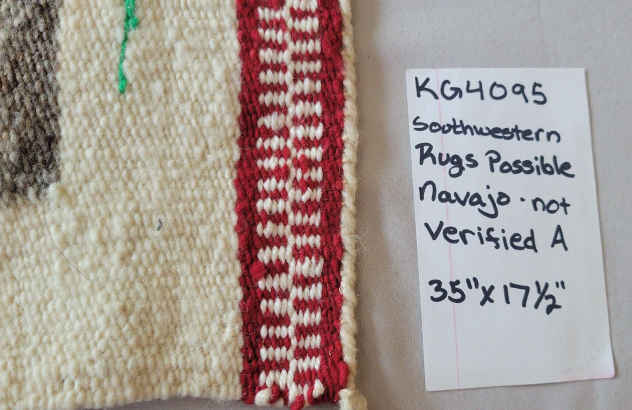 KG4095
Southwestern
Rugs Possible
Navajo - not
Verified A
35" x 17 1/2"